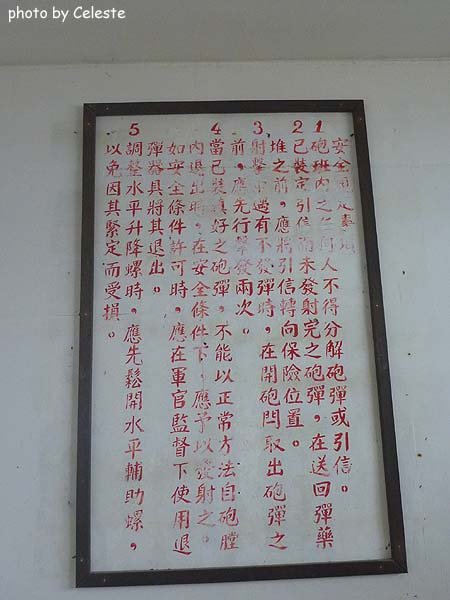 photo by Celeste
安全規定事項
1 砲班內之任何人不得分解砲彈或引信。
2 已裝定引信而未發射完之砲彈，在送回彈藥
堆之前，應將引信轉向保險位置。
3 射擊中遇有不發彈時，在開砲閂取出砲彈之
前，應先行擊發兩次。
4 當已裝填好之砲彈，不能以正常方法自砲膛
內退出時，在安全條件下，應予以發射之。
如安全條件許可時，應在軍官監督下使用退
彈器具將其退出。
5 調整水平升降螺時，應先鬆開水平輔助螺，
以免因其緊定而受損。